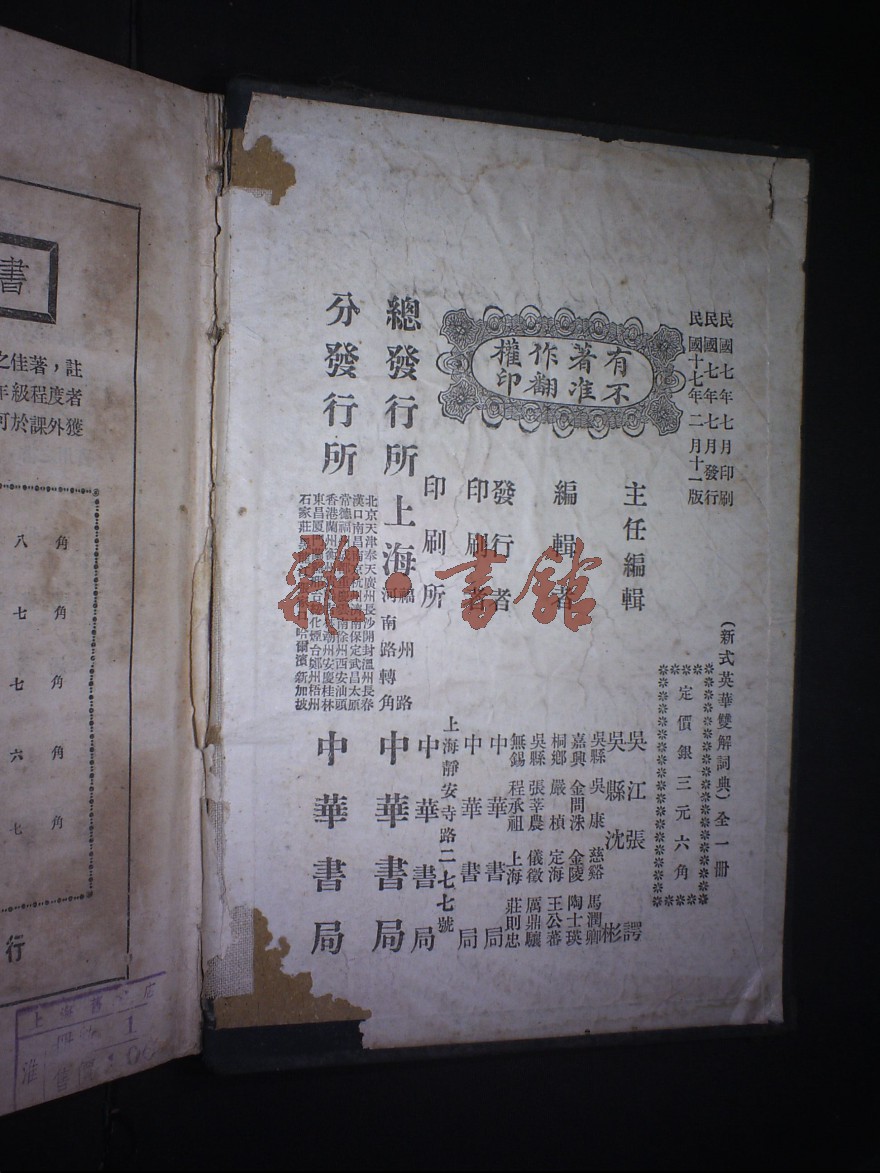 民國七年七月印刷
民國七年七月發行
民國十七年二月十一版
(新式英華雙解詞典)全一冊
定價銀三元六角
有著作權
不准翻印
主任編輯
吳江張諤
吳縣沈彬
編輯者
吳縣 吳康 慈谿 馬潤卿
嘉興 金問洙 金陵 陶士瑛
桐鄉 嚴楨 定海 王公蕃
吳縣 張莘農 儀徵 厲鼎驤
無錫 程承祖 上海 莊則忠
發行者 中華書局
印刷者 中華書局
印刷所 上海靜安寺路二七七號 中華書局
總發行所 上海福州路河南路轉角 中華書局
分發行所
北京天津奉天廣州長沙開封溫州長春
漢口南昌 杭州濟南保定武昌太原
常德 南徐州西安汕頭
香港蘭州 州安慶桂林
東昌廈門 化煙台鄭州梧州
石家莊 哈爾濱新加坡
中華書局
書
之佳著,註
年級程度者
可於課外獲
八角
七角
七角
六角
七角
行
上海舊書店
淮
1
雜·書館